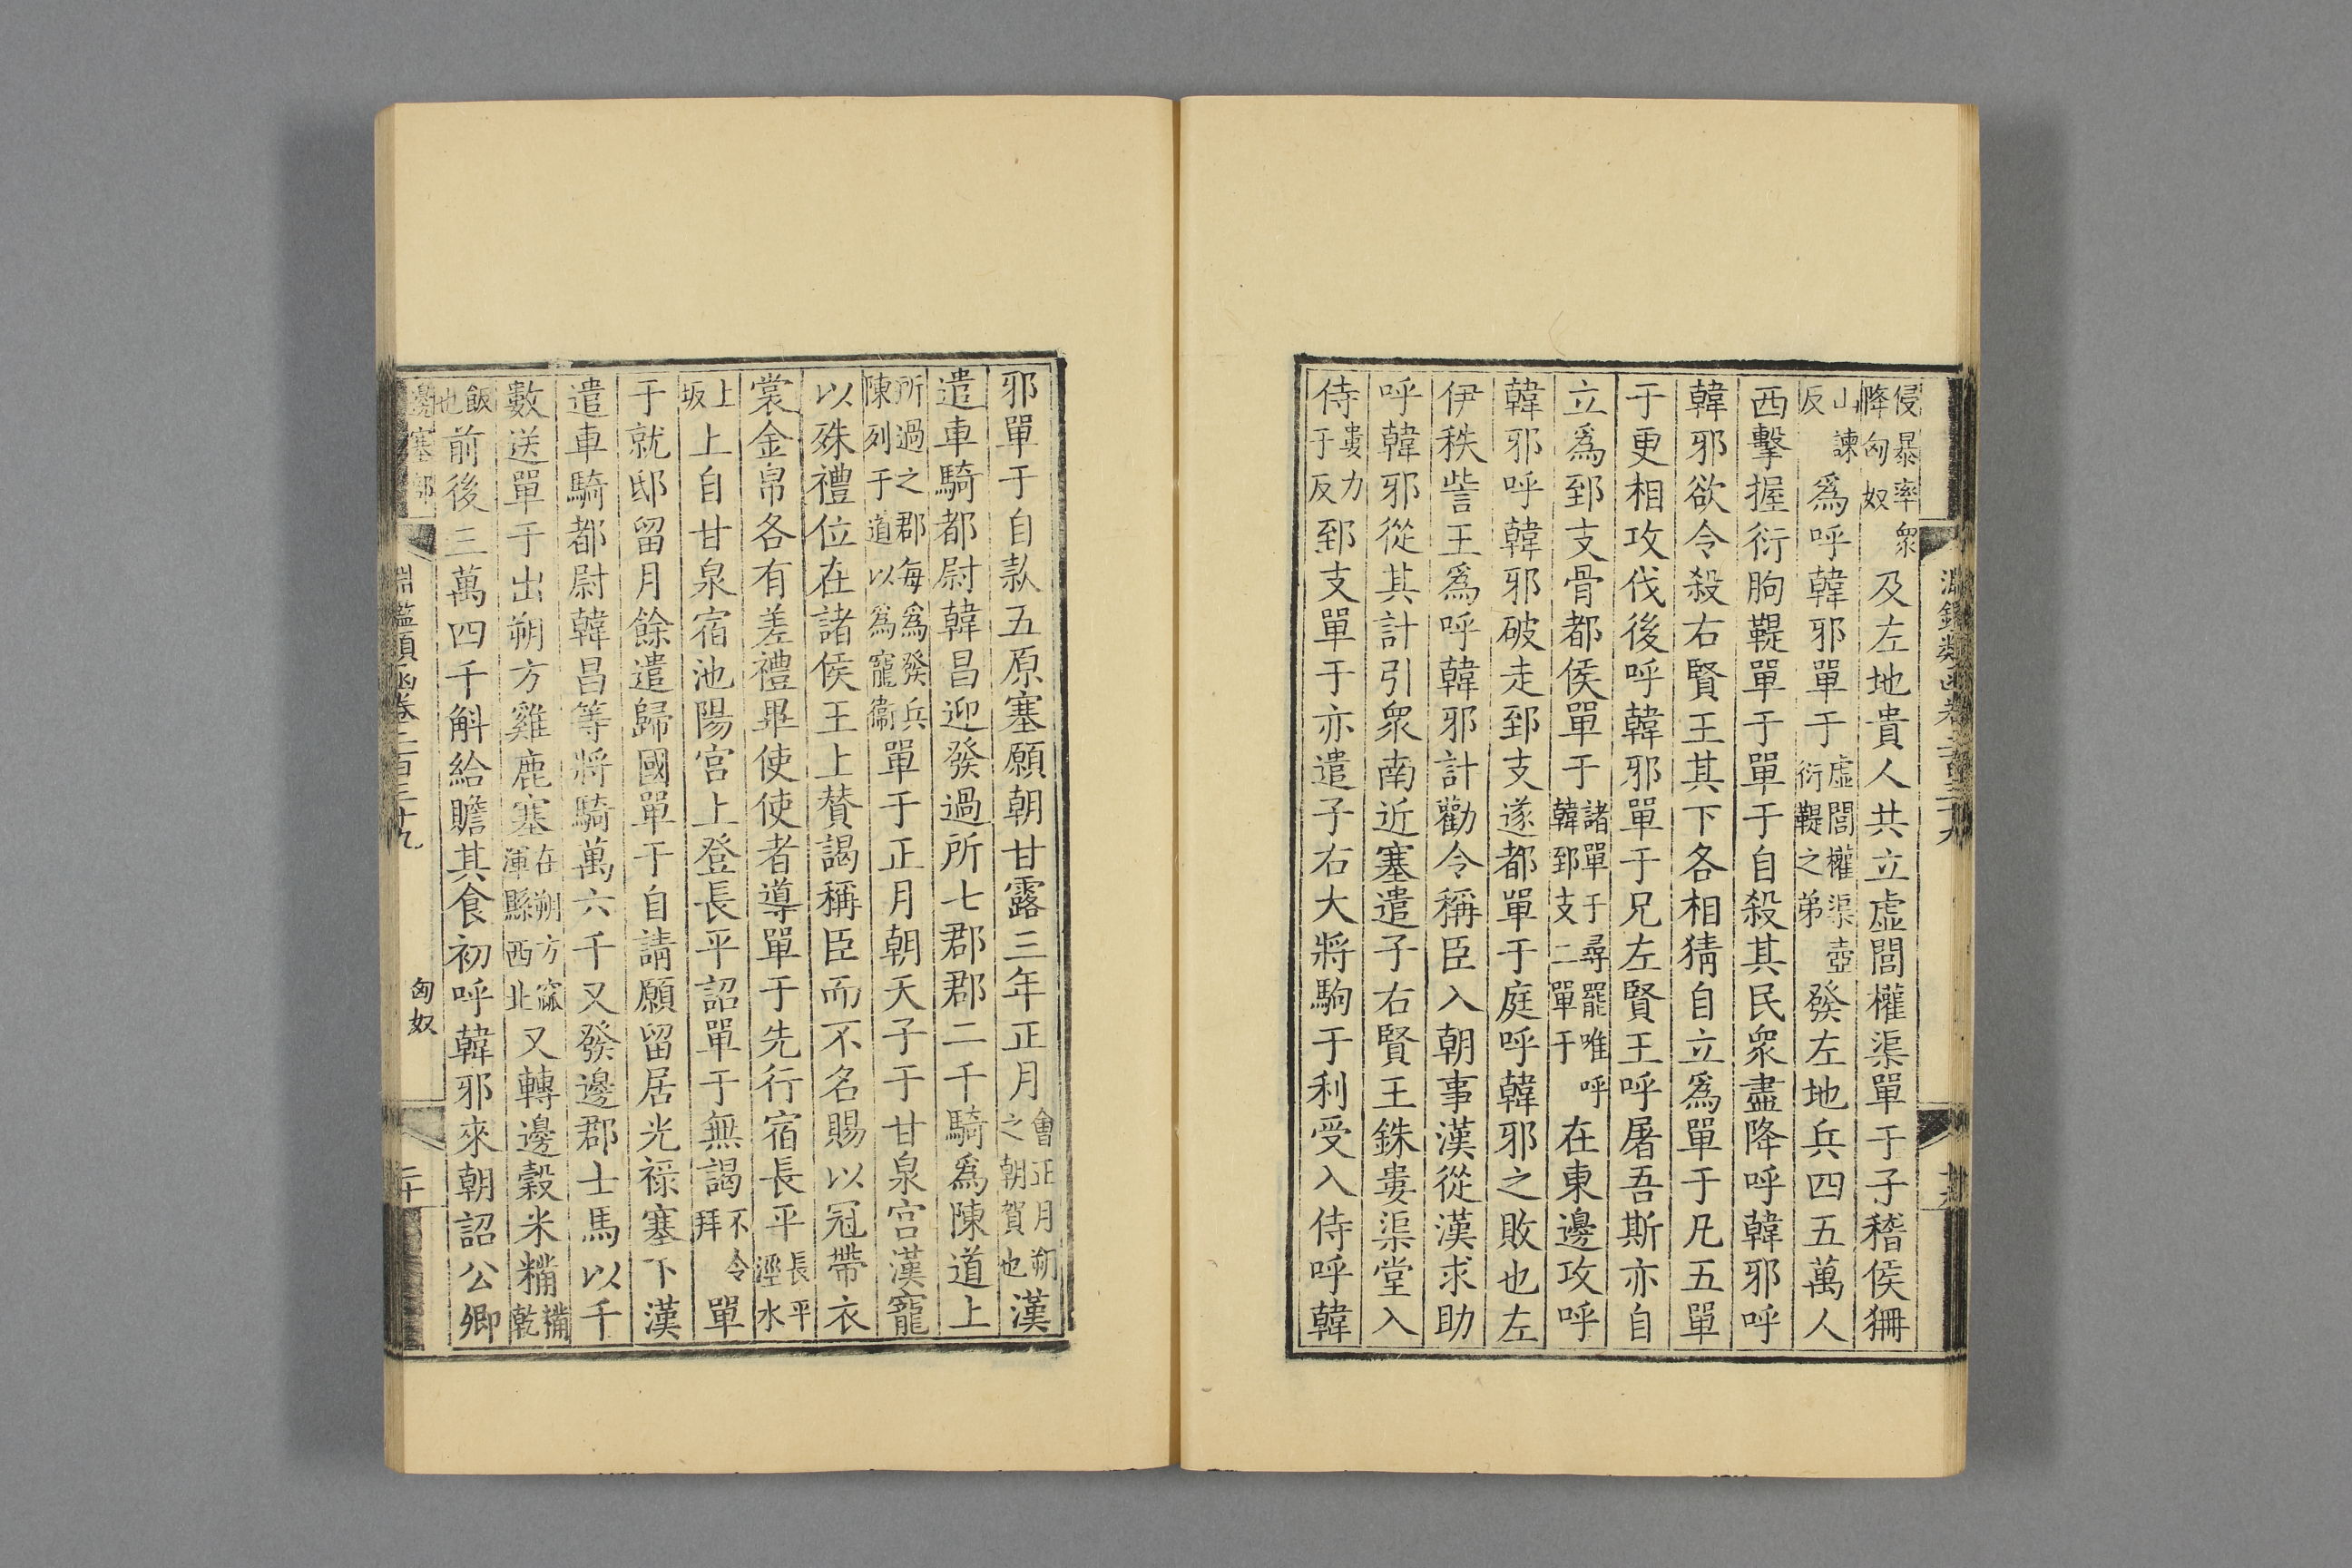 侵暴率衆降匈奴及左地貴人共立虛閭權渠單于子稽侯狦
山諫反爲呼韓邪單于虛閭權渠壺衍鞮之弟發左地兵四五萬人
西擊握衍朐鞮單于單于自殺其民衆盡降呼韓邪呼
韓邪欲令殺右賢王其下各相猜自立爲單于凡五單
于更相攻伐後呼韓邪單于兄左賢王呼屠吾斯亦自
立爲郅支骨都侯單于諸單于尋罷唯呼韓郅支二單于在東邊攻呼
韓邪呼韓邪破走郅支遂都單于庭呼韓邪之敗也左
伊秩訾王爲呼韓邪計勸令稱臣入朝事漢從漢求助
呼韓邪從其計引衆南近塞遣子右賢王銖婁渠堂入
侍婁力于反郅支單于亦遣子右大將駒于利受入侍呼韓
邪單于自款五原塞願朝甘露三年正月會正月朔之朝賀也漢
遣車騎都尉韓昌迎發過所七郡郡二千騎爲陳道上
所過之郡每爲發兵陳列于道以爲寵衞單于正月朝天子于甘泉宮漢寵
以殊禮位在諸侯王上贊謁稱臣而不名賜以冠帶衣
裳金帛各有差禮畢使使者導單于先行宿長平長平涇水
上坂上自甘泉宿池陽宮上登長平詔單于無謁不令拜單
于就邸留月餘遣歸國單于自請願留居光祿塞下漢
遣車騎都尉韓昌等將騎萬六千又發邊郡士馬以千
數送單于出朔方雞鹿塞在朔方窳渾縣西北又轉邊穀米糒糒乾
飯也前後三萬四千斛給贍其食初呼韓邪來朝詔公卿
淵鑑類函卷二百三十九
匈奴
二十